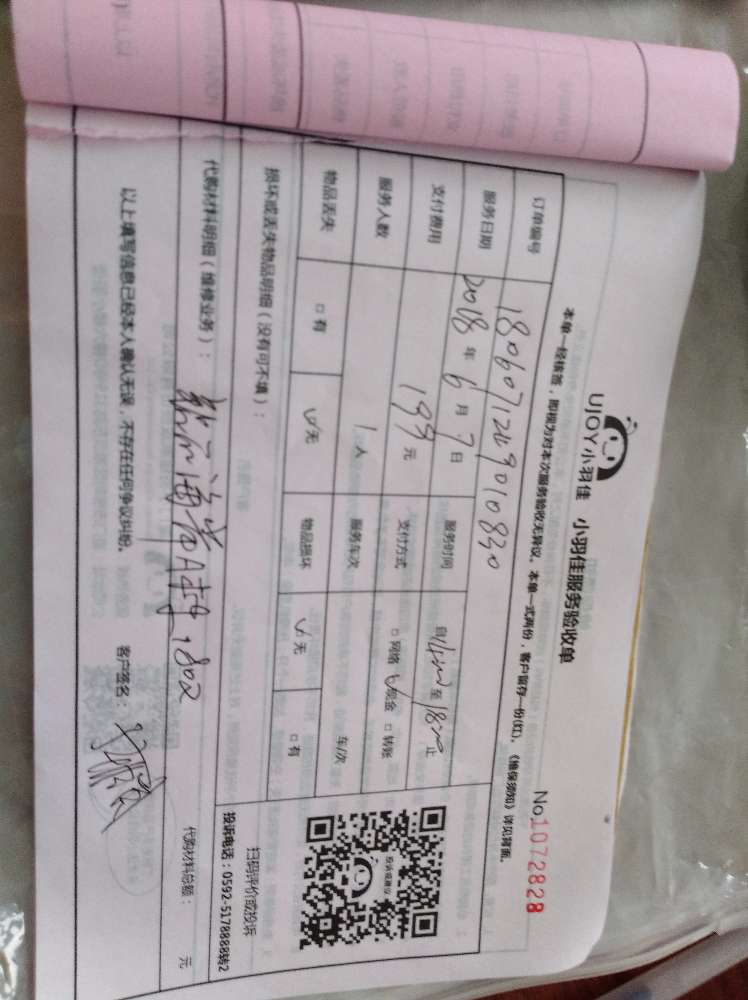 UJOY小羽佳 小羽佳服务验收单
No 1072828
本单一经核签，即视为对本次服务验收无异议。本单一式两份，客户留存一份(红)。《维保须知》详见背面。
订单编号 1806071249010830
服务日期 2018 年 6 月 7 日 服务时间 自 1400 至 1800 止
支付费用 199 元 支付方式 □ 网络 ☑ 现金 □ 转账
服务人数 1 人 服务车次 车/次
物品丢失 □ 有 ☑ 无 物品损坏 ☑ 无 □ 有
损坏或丢失物品明细（没有可不填）：
代购材料明细（维修业务）： 代购材料总额： 元
802
以上填写信息已经本人确认无误，不存在任何争议纠纷。 客户签名：
投诉或建议
扫码评价或投诉
投诉电话：0592-5178888转2